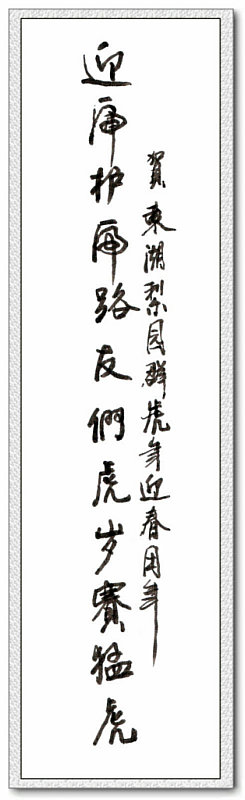 賀東湖梨园群虎年迎春周年
迎乕护乕路友們虎岁賽猛虎